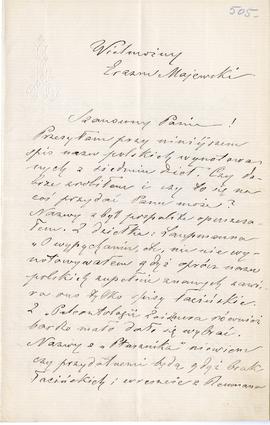 505.
Wielmożny
Erazm Majewski
Szanowny Panie!
Przesyłam przy niniejszem
spis nazw polskich wynotowa-
nych z siedmiu dzieł. Czy do-
brze zrobiłem i czy to się na
coś przydać Panu może?
Nazwy zbyt pospolite opuszcza-
łem. Z dziełka
"O wypychaniu, etc. nic nie wy-
notowywałem gdyż oprócz nazw
polskich zupełnie znanych zawie-
ra ono tylko spisy łacińskie.
Z Paleontologii również
bardzo mało dało się wybrać.
Nazwy z "Ptasznika" niewiem
czy przydatnemi będą gdyż brak
łacińskich; wreszcie z